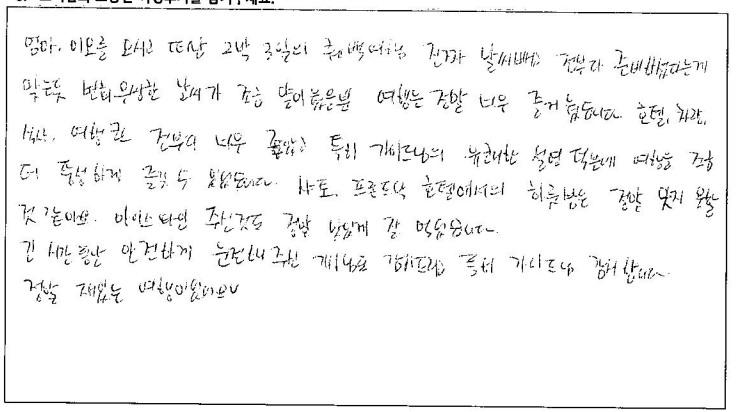 엄마, 이모를 모시고 떠난 2박 3일의 퀘벡여행 진짜 날씨빼고 전부다 완벽했다는게
맞는듯 변화무쌍한 날씨가 조금 많이 아쉬운 여행은 정말 너무 즐거웠습니다. 호텔, 차량,
식사, 여행 코스 전부다 너무 좋았고 특히 가이드님의 유쾌한 설명 덕분에 여행을 조금
더 풍성하게 즐길 수 있었습니다. 샤또 프론트낙 호텔에서의 하룻밤은 정말 잊지 못할
것 같아요. 아이스 와인 주신것도 정말 맛있게 잘 먹었습니다.
긴 시간동안 안전하게 운전해 주신 기사님도 감사드리고 특히 가이드님 감사합니다.
정말 재밌는 여행이었어요